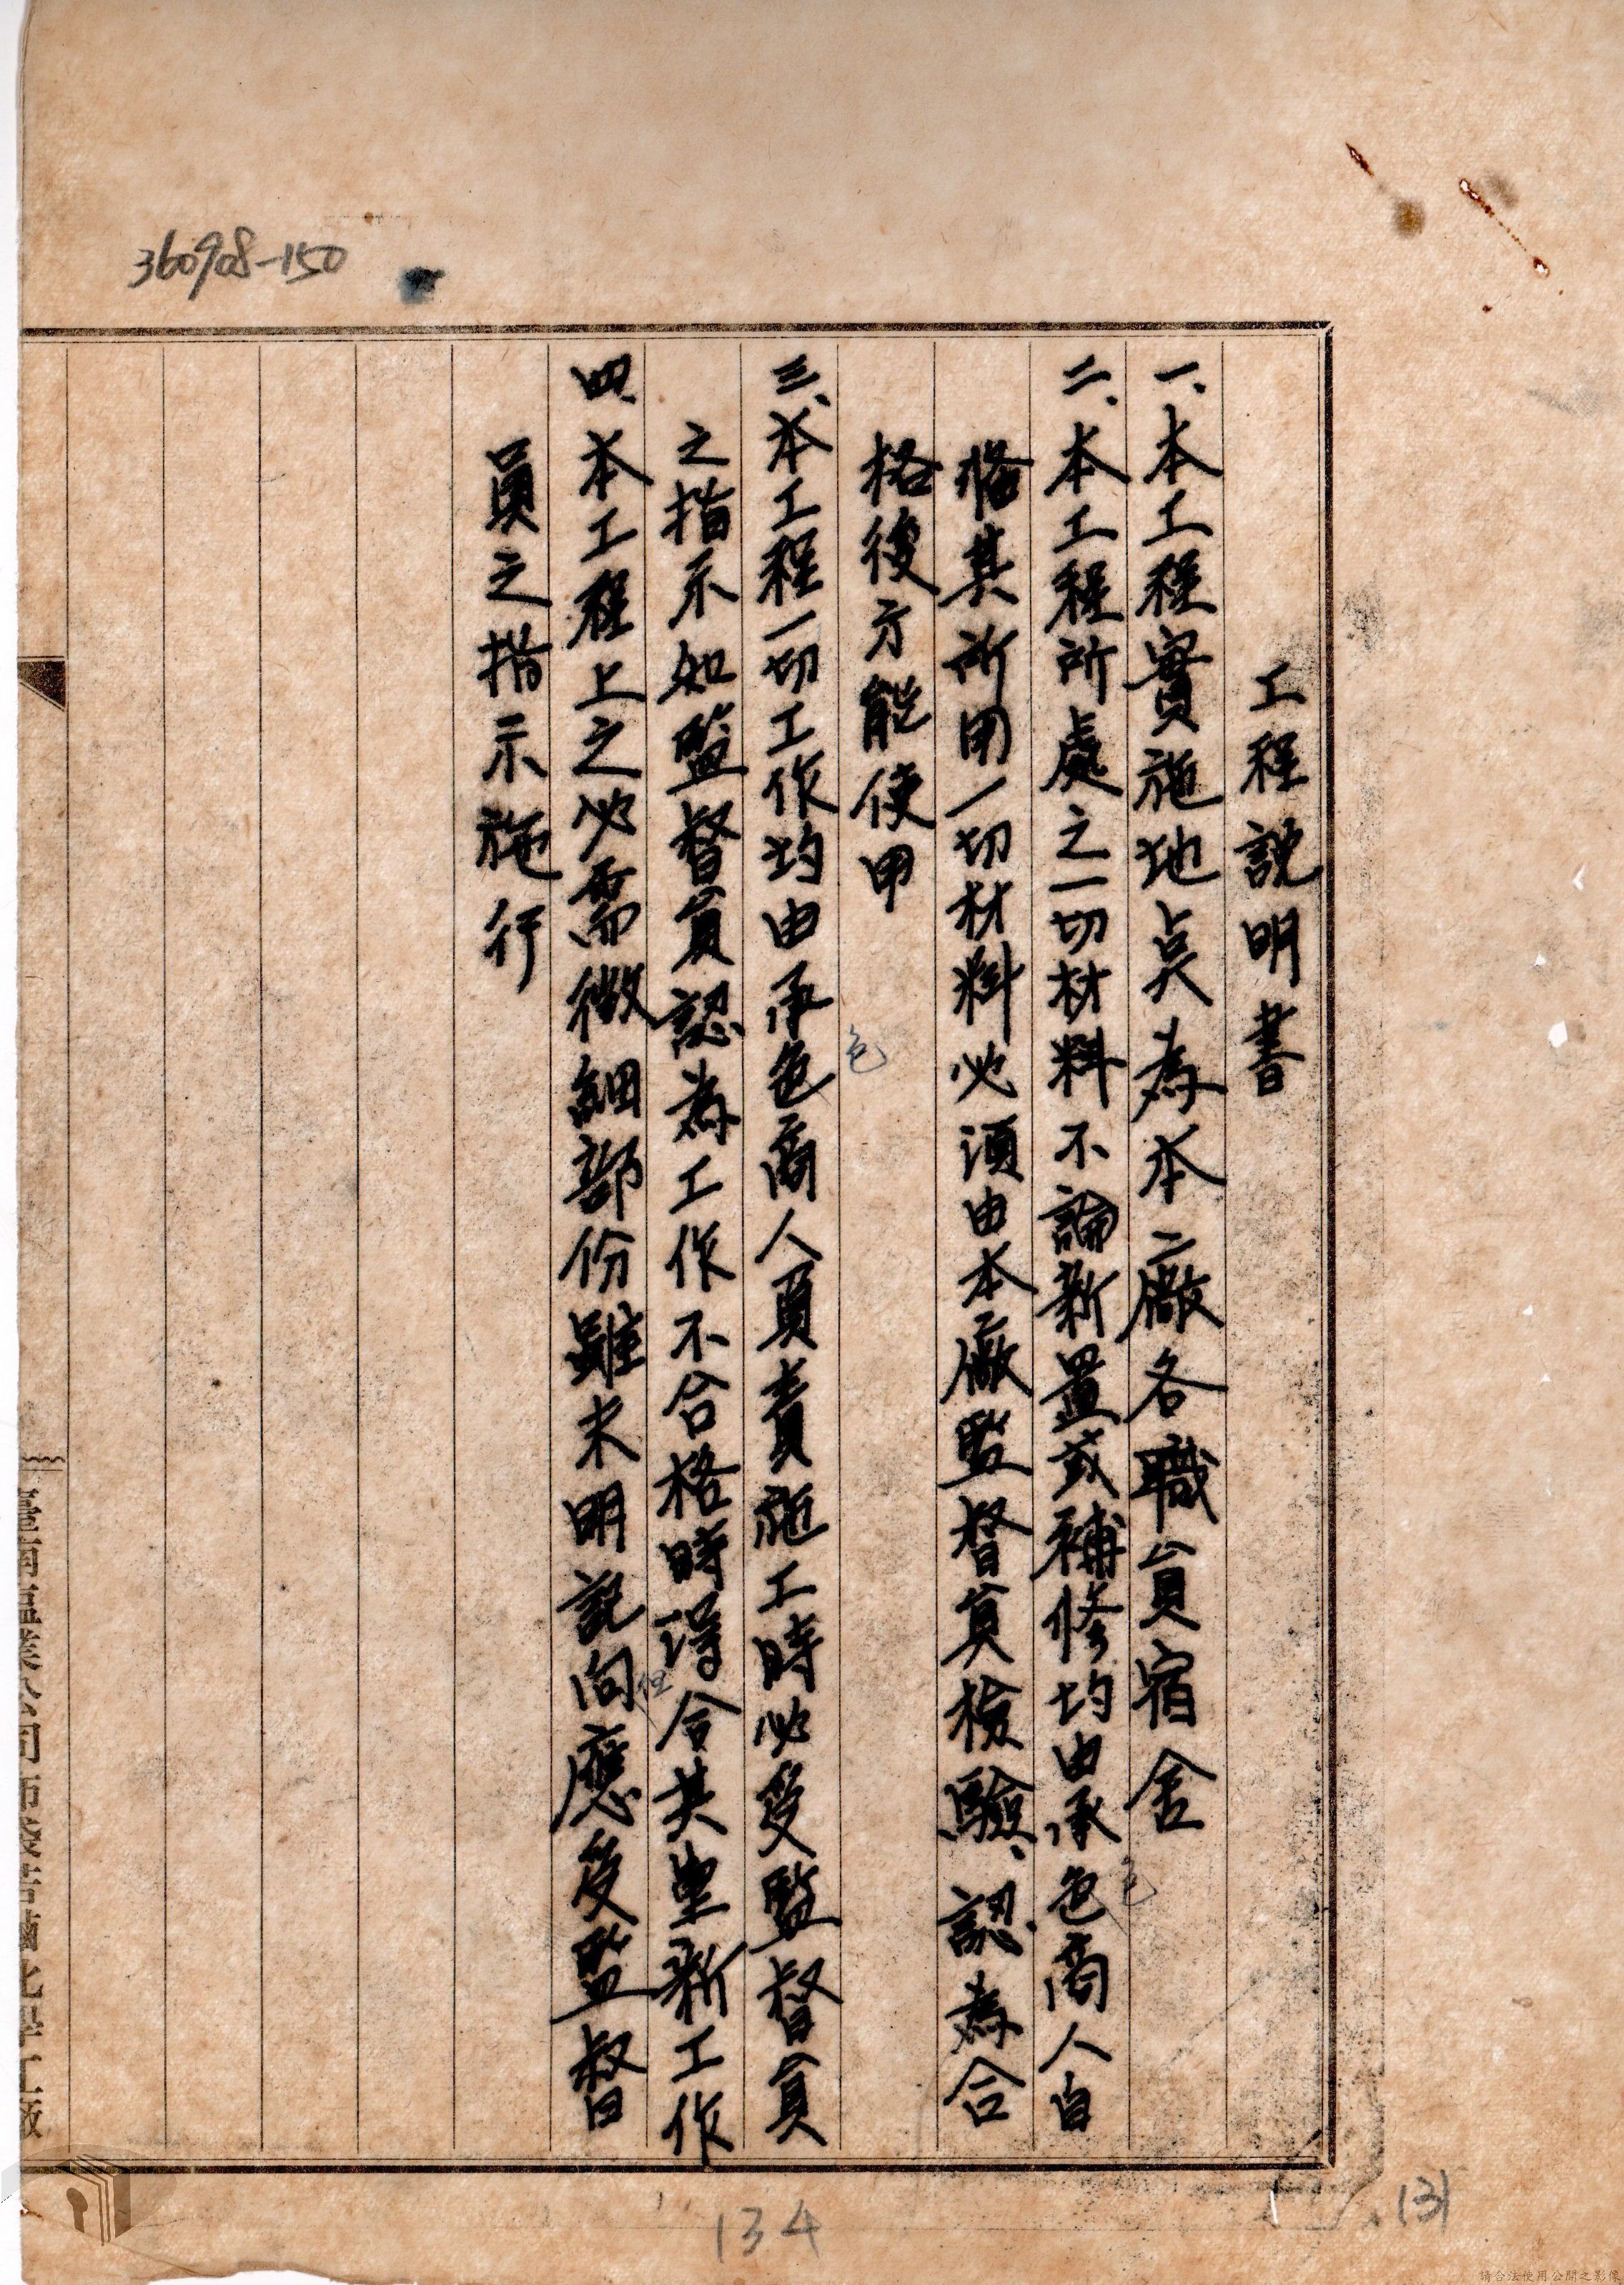 360908-150
工程說明書
一、本工程實施地点為本二廠各職員宿舍
二、本工程所處之一切材料不論新置或補修均由承色商人自
包
備其所用一切材料必須由本廠監督員檢驗、認為合
格後方能使甲
包
三、本工程一切工作均由承色商人負責施工時必受監督員
之指示如監督員認為工作不合格時得令其重新工作
但
四、本工程上之必需微細部份雖未明記向應受監督
員之指示施行
134
131
請合法使用公開之影像